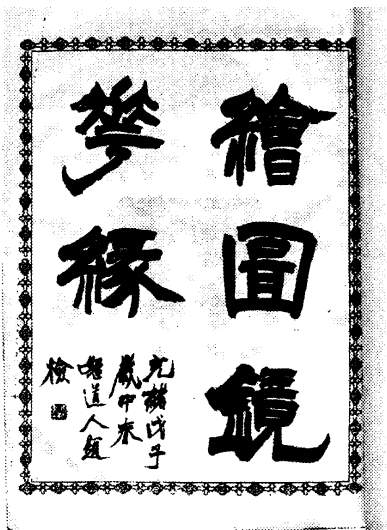 繪圖鏡
花緣
光緒戊子
歲中春
道人題
檢